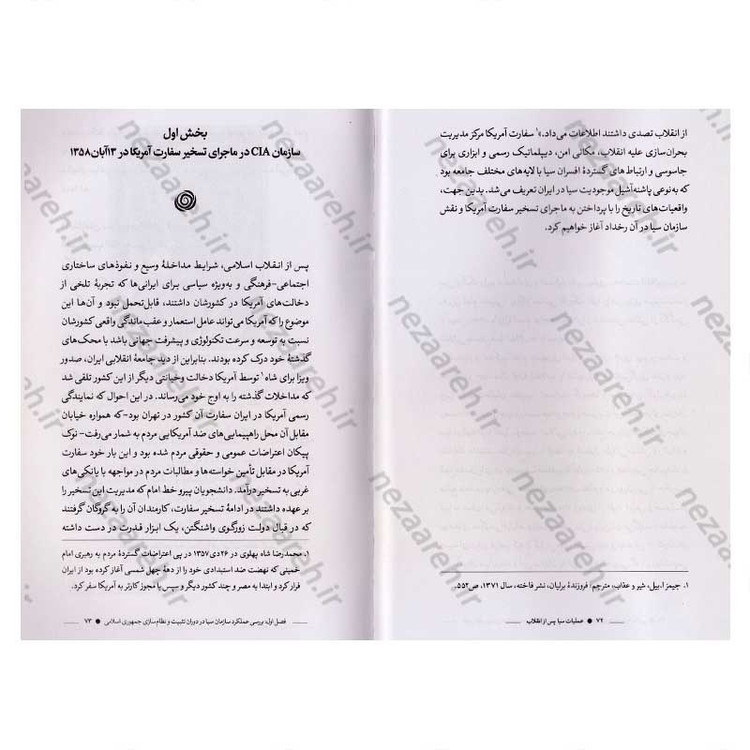 از انقلاب تصدی داشتند اطلاعات می‌داد.»۱ سفارت آمریکا مرکز مدیریت
بحران‌سازی علیه انقلاب، مکانی امن، دیپلماتیک رسمی و ابزاری برای
جاسوسی و ارتباط‌های گستردهٔ افسران سیا با لایه‌های مختلف جامعه بود
که به‌نوعی پاشنه‌آشیل موجودیت سیا در ایران تعریف می‌شد. بدین جهت،
واقعیات‌های تاریخ را با پرداختن به ماجرای تسخیر سفارت آمریکا و نقش
سازمان سیا در آن رخداد آغاز خواهیم کرد.
۱. جیمز ا.بیل، شیر و عذاب، مترجم: فروزندهٔ برلیان، نشر فاخته، سال ۱۳۷۱، ص۵۵۲.
۷۲ ● عملیات سیا پس از انقلاب
بخش اول
سازمان CIA در ماجرای تسخیر سفارت آمریکا در ۱۳آبان۱۳۵۸
پس از انقلاب اسلامی، شرایط مداخلهٔ وسیع و نفوذهای ساختاری
اجتماعی-فرهنگی و به‌ویژه سیاسی برای ایرانی‌ها که تجربهٔ تلخی از
دخالت‌های آمریکا در کشورشان داشتند، قابل‌تحمل نبود و آن‌ها این
موضوع را که آمریکا می‌تواند عامل استعمار و عقب‌ماندگی واقعی کشورشان
نسبت به توسعه و سرعت تکنولوژی و پیشرفت جهانی باشد با محک‌های
گذشتهٔ خود درک کرده بودند. بنابراین از دید جامعهٔ انقلابی ایران، صدور
ویزا برای شاه۱ توسط آمریکا دخالت وخیانتی دیگر از این کشور تلقی شد
که مداخلات گذشته را به اوج خود می‌رساند. در این احوال که نمایندگی
رسمی آمریکا در ایران سفارت آن کشور در تهران بود-که همواره خیابان
مقابل آن محل راهپیمایی‌های ضد آمریکایی مردم به شمار می‌رفت- نوک
پیکان اعتراضات عمومی و حقوقی مردم شده بود و این بار خود سفارت
آمریکا در مقابل تأمین خواسته‌ها و مطالبات مردم در مواجهه با یانکی‌های
غربی به تسخیر درآمد. دانشجویان پیرو خط امام که مدیریت این تسخیر را
بر عهده داشتند در ادامهٔ تسخیر سفارت، کارمندان آن را به گروگان گرفتند
که در قبال دولت زورگوی واشنگتن، یک ابزار قدرت در دست داشته
۱. محمدرضا شاه پهلوی در ۲۶دی۱۳۵۷ در پی اعتراضات گستردهٔ مردم به رهبری امام
خمینی که نهضت ضد استبدادی خود را از دههٔ چهل شمسی آغاز کرده بود از ایران
فرار کرد و ابتدا به مصر و چند کشور دیگر و سپس با مجوز کارتر به آمریکا سفر کرد.
فصل اول، بررسی عملکرد سازمان سیا در دوران تثبیت و نظام‌سازی جمهوری اسلامی ● ۷۳
nezaareh.ir
nezaareh.ir
nezaareh.ir
nezaareh.ir
nezaareh.ir
nezaareh.ir